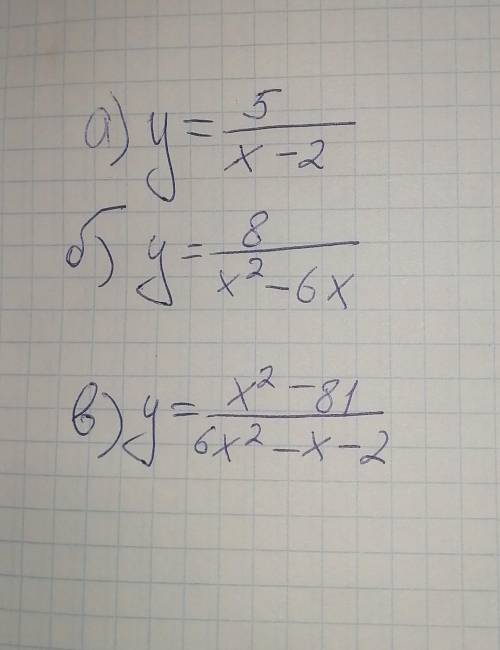 а) y = 5 / x - 2
б) y = 8 / x² - 6x
в) y = x² - 81 / 6x² - x - 2